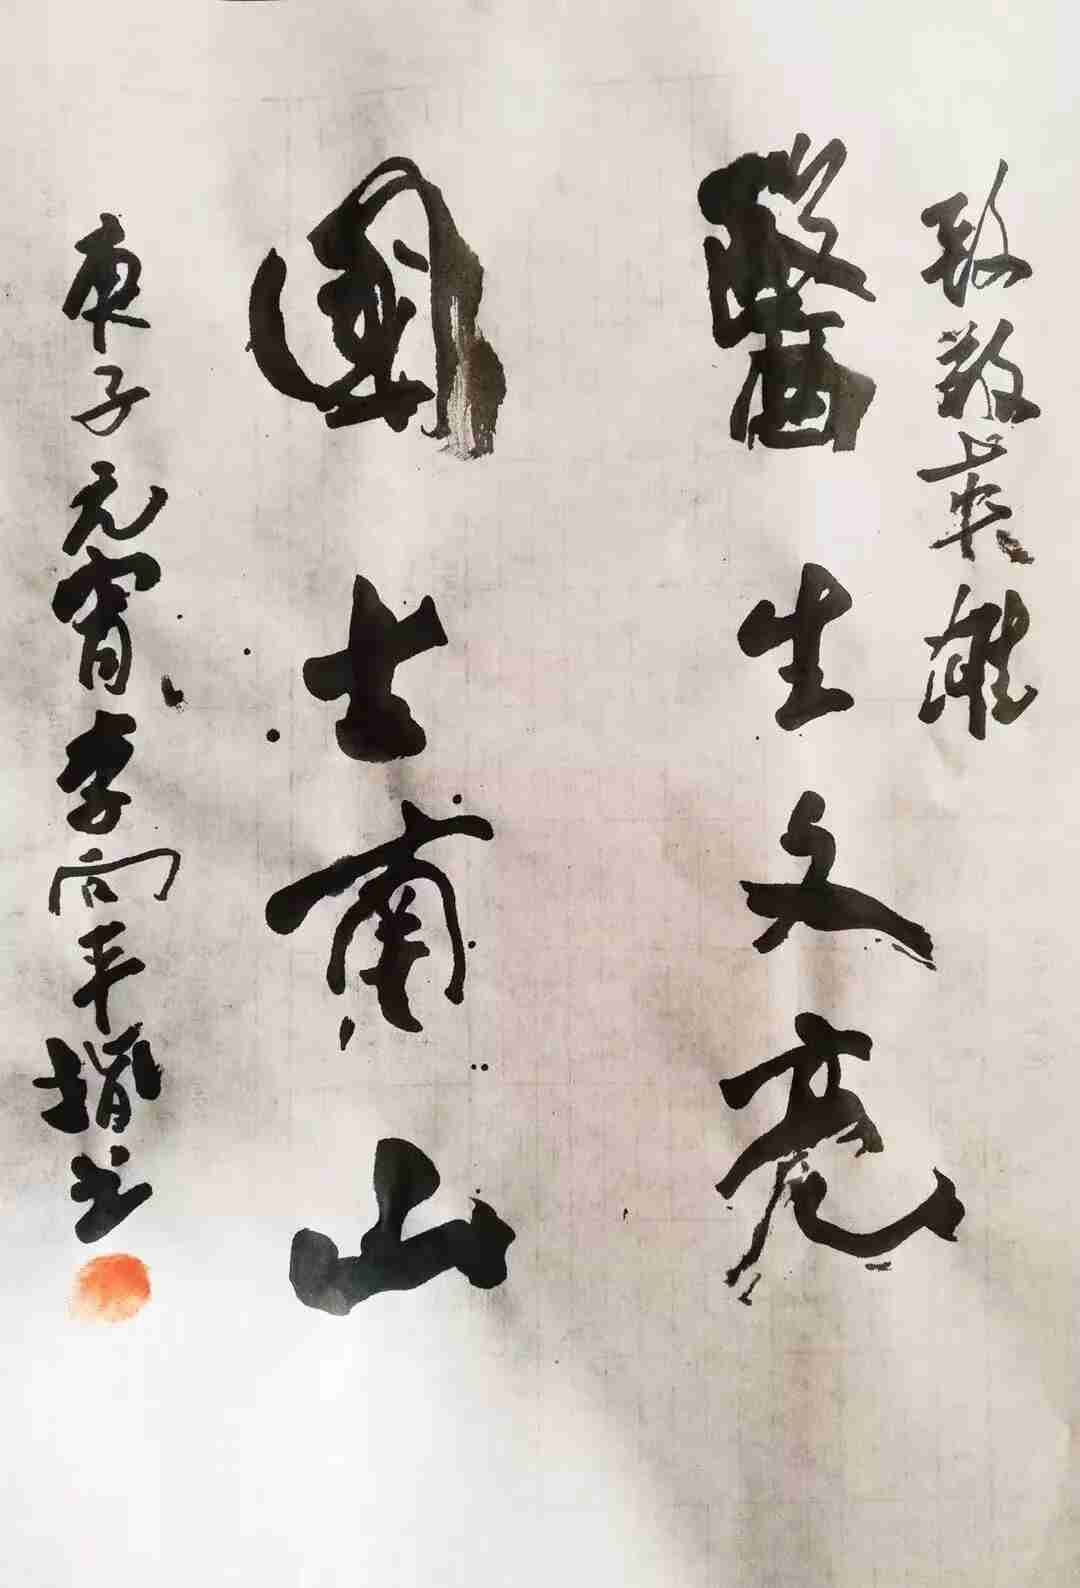 致敬英雄
醫生文亮
國士南山
庚子元宵李向平撰書